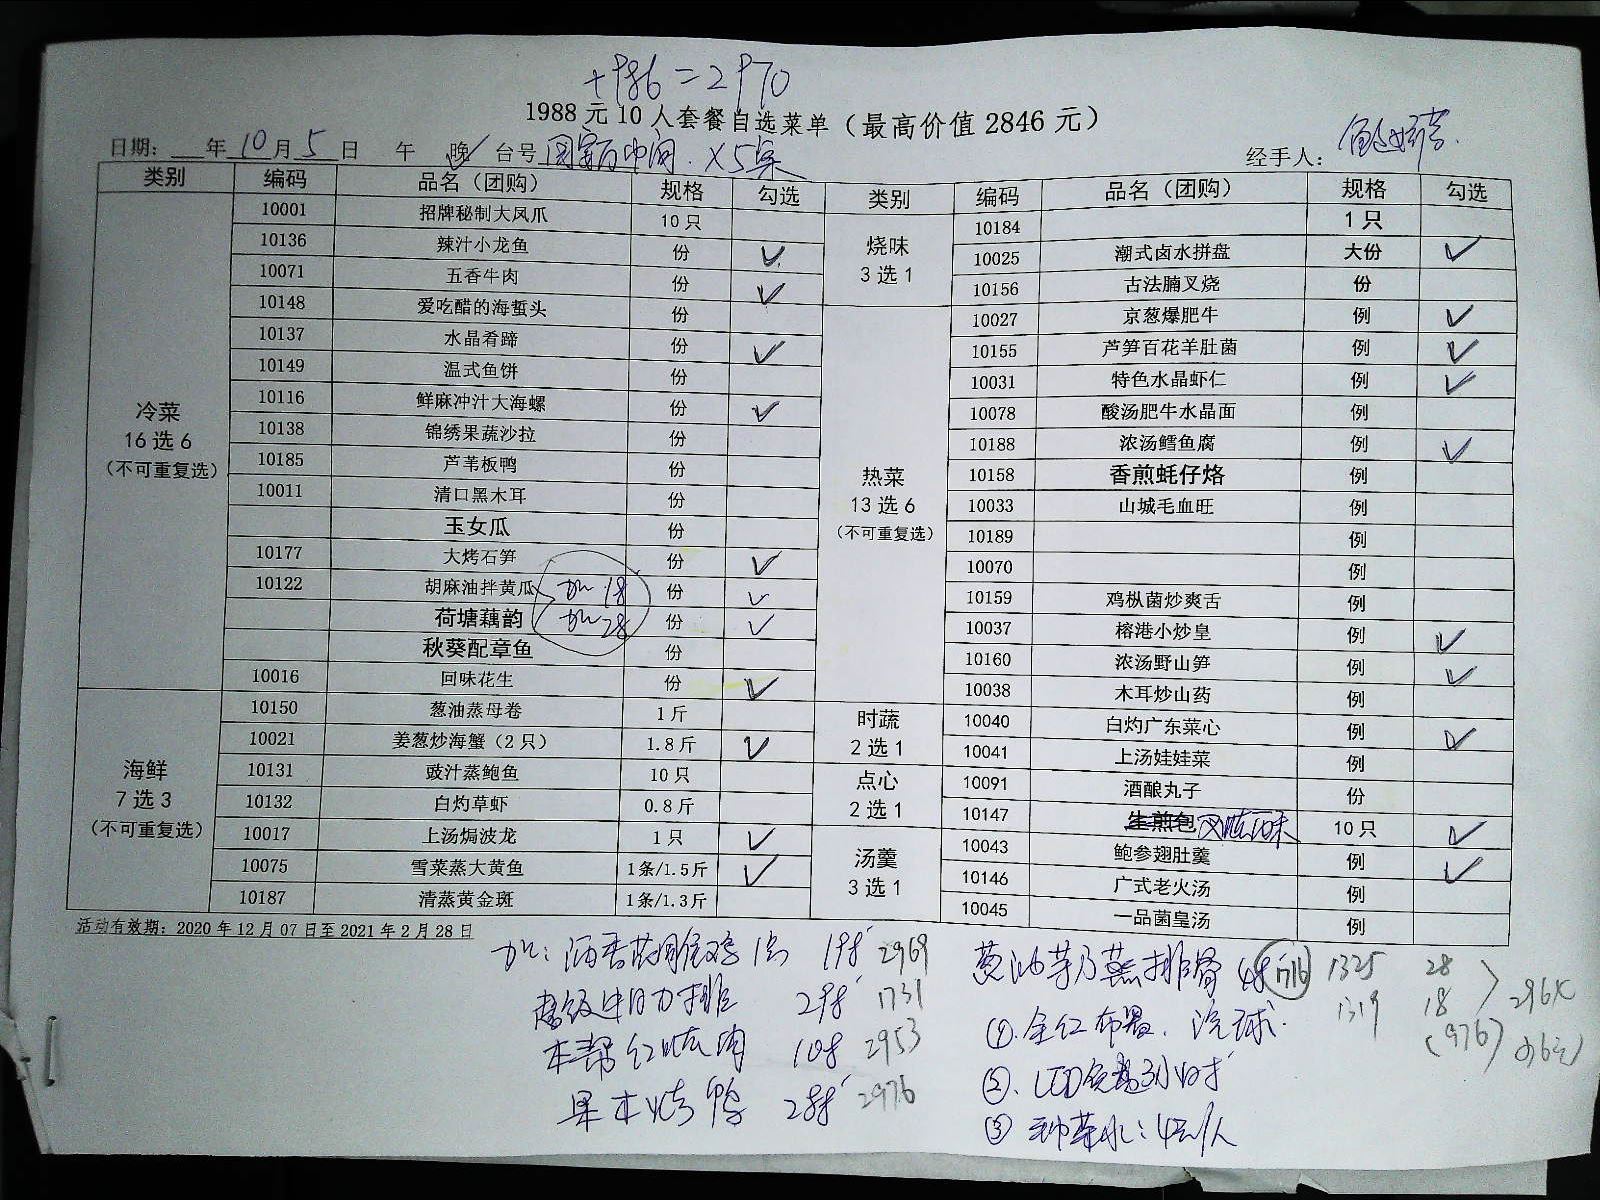 +986=2970
1988元10人套餐自选菜单（最高价值2846元）
日期：___年10月5日 午 晚✓ 台号 ×5桌 经手人：
类别 编码 品名（团购） 规格 勾选
冷菜
16选6
（不可重复选）
10001 招牌秘制大凤爪 10只
10136 辣汁小龙鱼 份 ✓
10071 五香牛肉 份 ✓
10148 爱吃醋的海蜇头 份
10137 水晶肴蹄 份 ✓
10149 温式鱼饼 份
10116 鲜麻冲汁大海螺 份 ✓
10138 锦绣果蔬沙拉 份
10185 芦苇板鸭 份
10011 清口黑木耳 份
玉女瓜 份
10177 大烤石笋 份 ✓
10122 胡麻油拌黄瓜 加18 份 ✓
荷塘藕韵 加28 份 ✓
秋葵配章鱼 份
10016 回味花生 份 ✓
海鲜
7选3
（不可重复选）
10150 葱油蒸母卷 1斤
10021 姜葱炒海蟹（2只） 1.8斤 ✓
10131 豉汁蒸鲍鱼 10只
10132 白灼草虾 0.8斤
10017 上汤焗波龙 1只 ✓
10075 雪菜蒸大黄鱼 1条/1.5斤 ✓
10187 清蒸黄金斑 1条/1.3斤
活动有效期：2020年12月07日至2021年2月28日
类别 编码 品名（团购） 规格 勾选
烧味
3选1
10184 1只
10025 潮式卤水拼盘 大份 ✓
10156 古法腩叉烧 份
热菜
13选6
（不可重复选）
10027 京葱爆肥牛 例 ✓
10155 芦笋百花羊肚菌 例 ✓
10031 特色水晶虾仁 例 ✓
10078 酸汤肥牛水晶面 例
10188 浓汤鳕鱼腐 例 ✓
10158 香煎蚝仔烙 例
10033 山城毛血旺 例
10189 例
10070 例
10159 鸡枞菌炒爽舌 例
10037 榕港小炒皇 例 ✓
10160 浓汤野山笋 例 ✓
10038 木耳炒山药 例
时蔬
2选1
10040 白灼广东菜心 例 ✓
10041 上汤娃娃菜 例
点心
2选1
10091 酒酿丸子 份
10147 生煎包 10只 ✓
汤羹
3选1
10043 鲍参翅肚羹 例 ✓
10146 广式老火汤 例
10045 一品菌皇汤 例
加： 198 2969
298 1731
本帮红烧肉 108 2953
果木烤鸭 288 2976
葱油芋艿蒸排骨 1716 1325 28
1319 18
(976)
①.全红布置、汽球.
②.LED
③ 4元/人